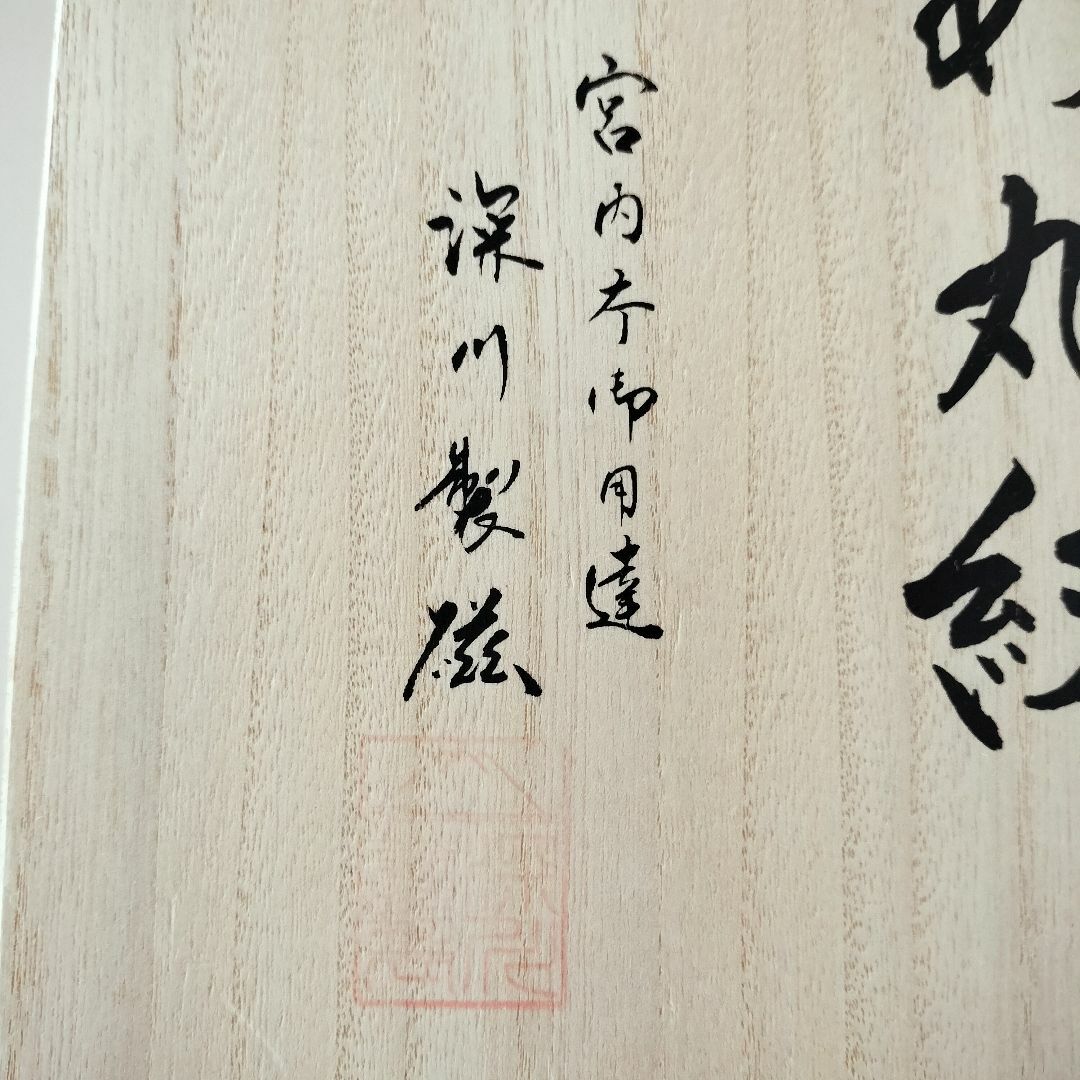 丸紋
宮内庁御用達
深川製磁